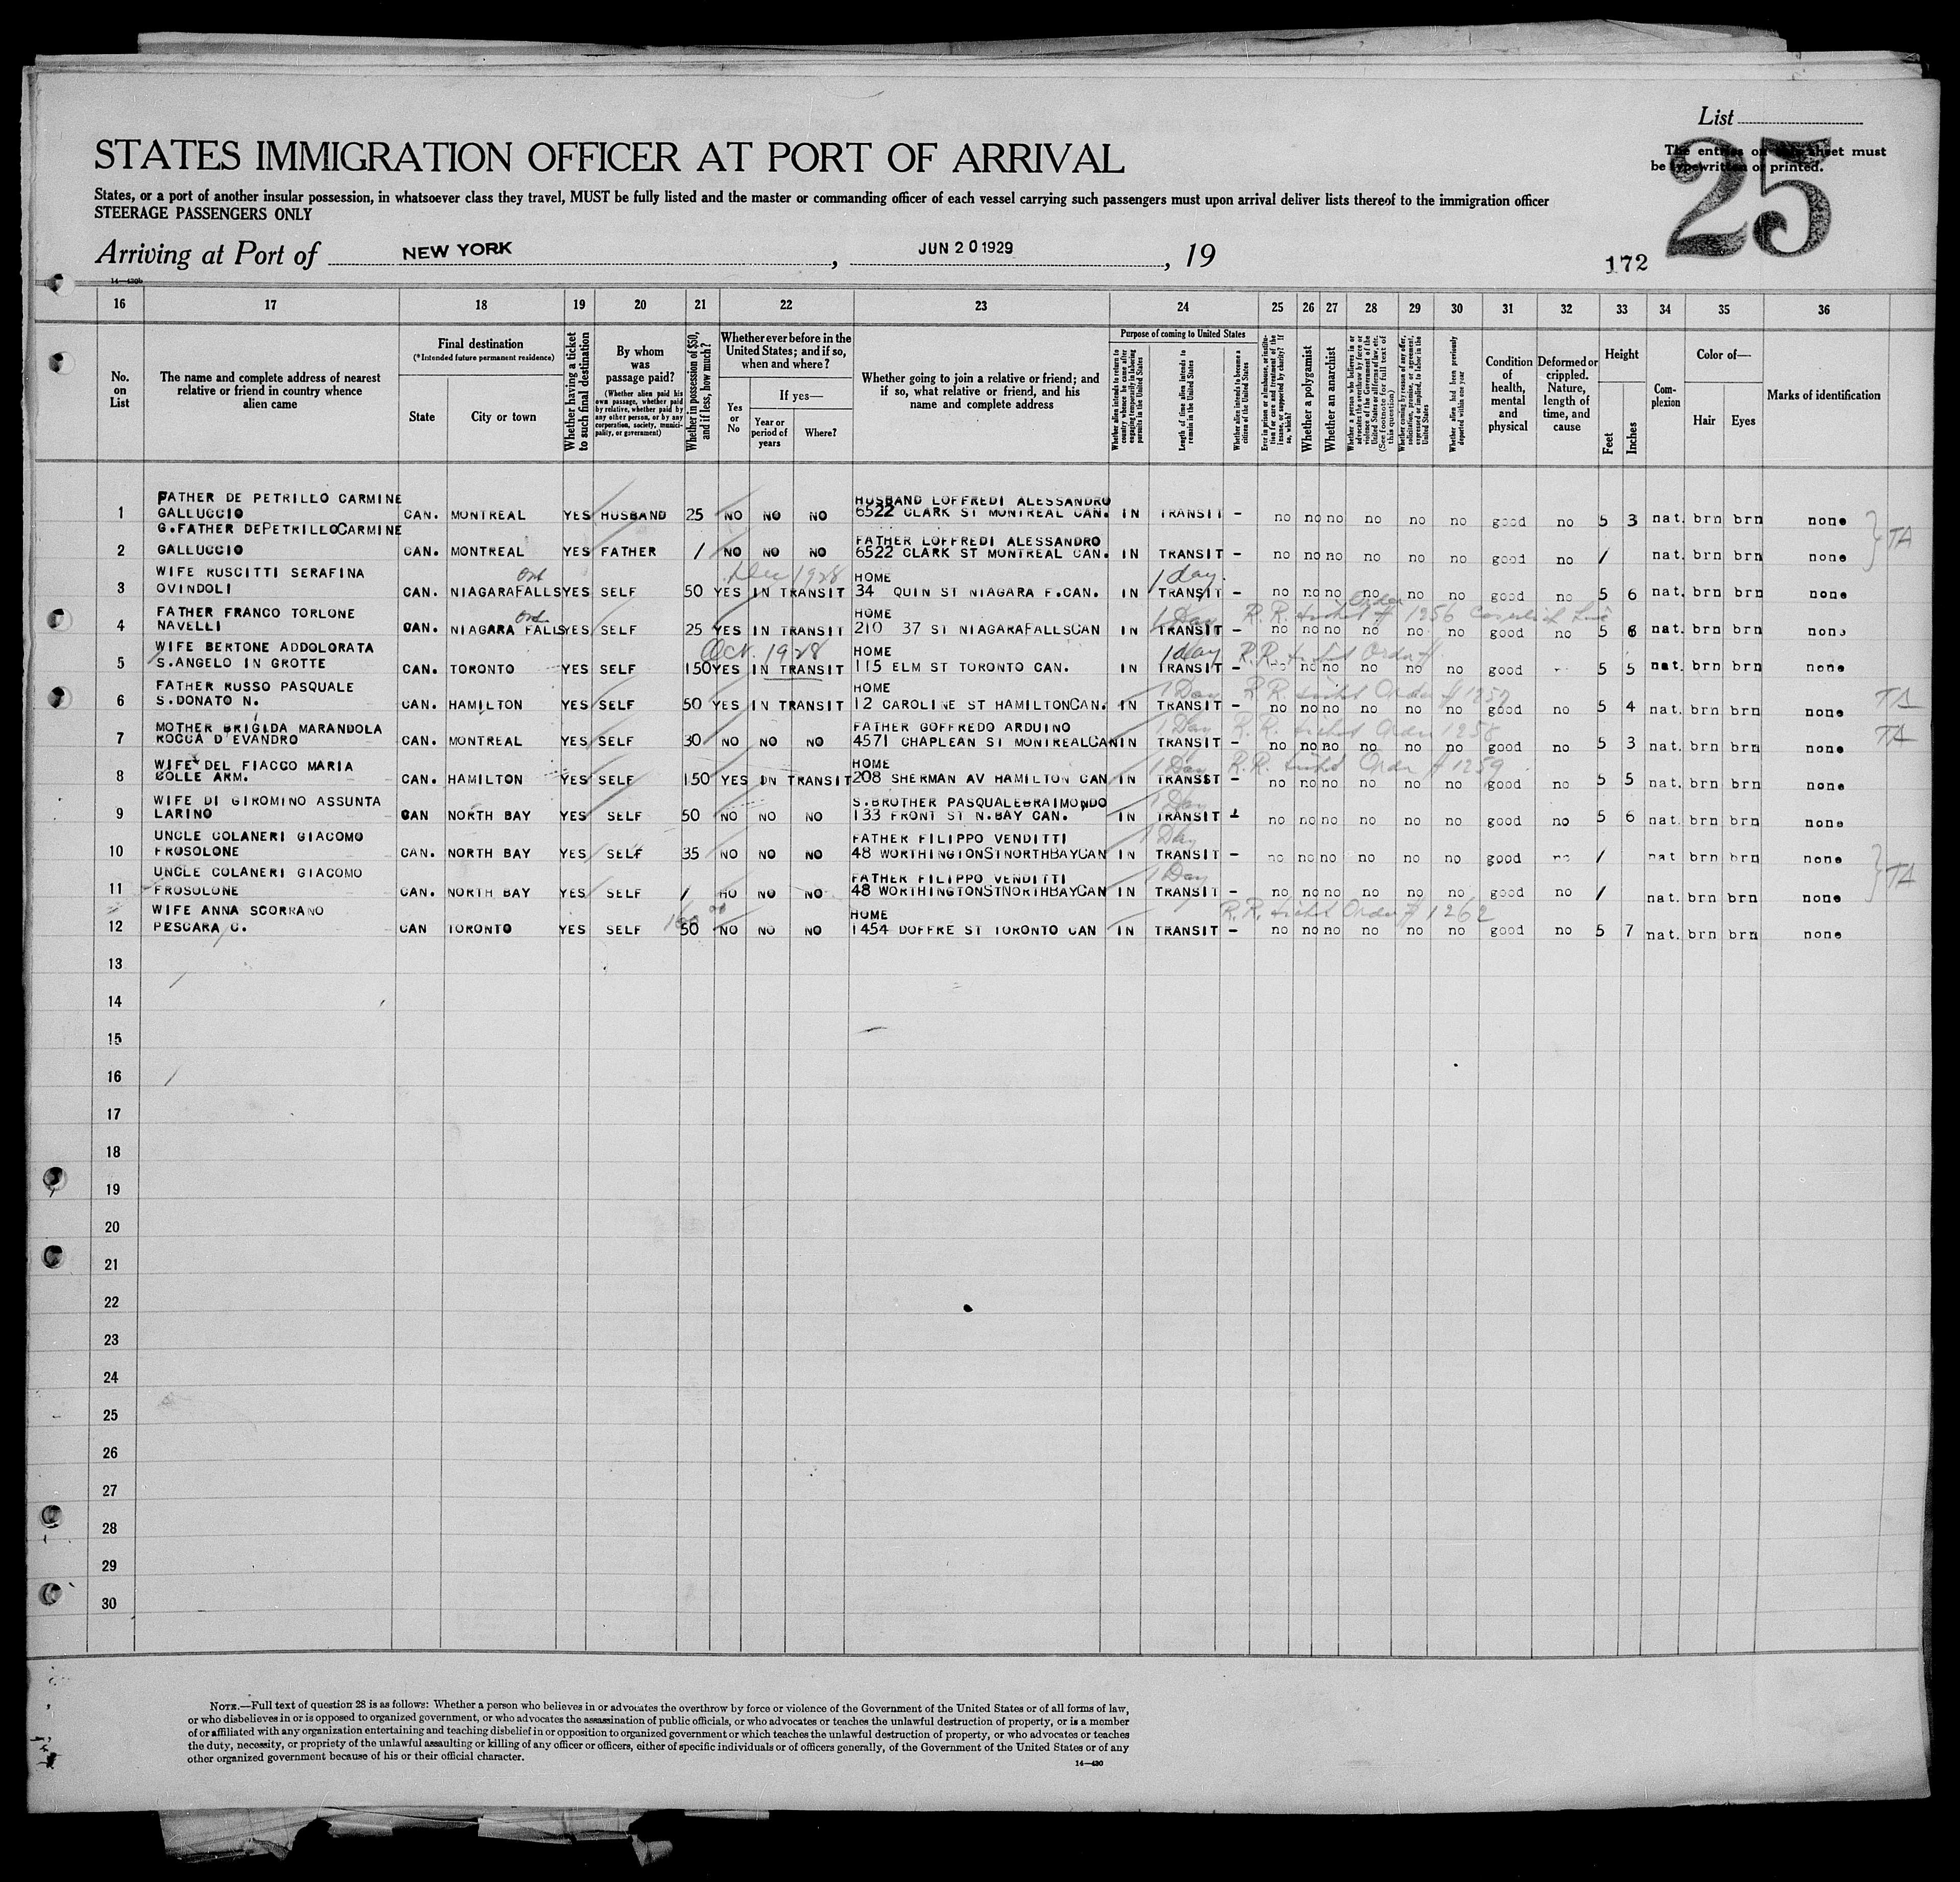 List
The entries on this sheet must
be typewritten or printed.
25
STATES IMMIGRATION OFFICER AT PORT OF ARRIVAL
States, or a port of another insular possession, in whatsoever class they travel, MUST be fully listed and the master or commanding officer of each vessel carrying such passengers must upon arrival deliver lists thereof to the immigration officer
STEERAGE PASSENGERS ONLY
Arriving at Port of NEW YORK, JUN 20 1929, 19
172
14—430b
16 17 18 19 20 21 22 23 24 25 26 27 28 29 30 31 32 33 34 35 36
No. on List
The name and complete address of nearest relative or friend in country whence alien came
Final destination
(*Intended future permanent residence)
State
City or town
Whether having a ticket to such final destination
By whom was passage paid?
(Whether alien paid his own passage, whether paid by relative, whether paid by any other person, or by any corporation, society, municipality, or government)
Whether in possession of $50, and if less, how much?
Whether ever before in the United States; and if so, when and where?
Yes or No
If yes—
Year or period of years
Where?
Whether going to join a relative or friend; and if so, what relative or friend, and his name and complete address
Purpose of coming to United States
Whether alien intends to return to country whence he came after engaging temporarily in laboring pursuits in the United States
Length of time alien intends to remain in the United States
Whether alien intends to become a citizen of the United States
Ever in prison or almshouse, or institution for care and treatment of the insane, or supported by charity? If so, which?
Whether a polygamist
Whether an anarchist
Whether a person who believes in or advocates the overthrow by force or violence of the Government of the United States or all forms of law, etc. (See footnote for full text of this question)
Whether coming by reason of any offer, solicitation, promise, or agreement, expressed or implied, to labor in the United States
Whether alien had been previously deported within one year
Condition of health, mental and physical
Deformed or crippled. Nature, length of time, and cause
Height
Feet
Inches
Complexion
Color of—
Hair
Eyes
Marks of identification
FATHER DE PETRILLO CARMINE HUSBAND LOFFREDI ALESSANDRO
1 GALLUCCIO CAN. MONTREAL YES HUSBAND 25 NO NO NO 6522 CLARK ST MONTREAL CAN. IN TRANSIT - no no no no no no good no 5 3 nat. brn brn none
G.FATHER DEPETRILLOCARMINE FATHER LOFFREDI ALESSANDRO TA
2 GALLUCCIO CAN. MONTREAL YES FATHER / NO NO NO 6522 CLARK ST MONTREAL CAN. IN TRANSIT - no no no no no no good no / nat. brn brn none
WIFE RUSCITTI SERAFINA Ont Dec 1928 HOME 1 day.
3 OVINDOLI CAN. NIAGARAFALLS YES SELF 50 YES IN TRANSIT 34 QUIN ST NIAGARA F.CAN. IN TRANSIT - no no no no no no good no 5 6 nat. brn brn none
FATHER FRANCO TORLONE Ont HOME 1 Day R.R. ticket Order # 1256
4 NAVELLI CAN. NIAGARA FALLS YES SELF 25 YES IN TRANSIT 210 37 ST NIAGARAFALLSCAN IN TRANSIT - no no no no no no good no 5 6 nat. brn brn none
WIFE BERTONE ADDOLORATA Oct. 1928 HOME 1 day R.R. ticket Order #
5 S.ANGELO IN GROTTE CAN. TORONTO YES SELF 150 YES IN TRANSIT 115 ELM ST TORONTO CAN. IN TRANSIT - no no no no no no good 5 5 nat. brn brn none
FATHER RUSSO PASQUALE HOME 1 Day R.R. ticket Order # 1257 TA
6 S.DONATO N. CAN. HAMILTON YES SELF 50 YES IN TRANSIT 12 CAROLINE ST HAMILTONCAN. IN TRANSIT - no no no no no no good no 5 4 nat. brn brn none
MOTHER BRIGIDA MARANDOLA FATHER GOFFREDO ARDUINO 1 Day R.R. ticket Order 1258 TA
7 ROCCA D'EVANDRO CAN. MONTREAL YES SELF 30 NO NO NO 4571 CHAPLEAN ST MONTREALCAN IN TRANSIT - no no no no no no good no 5 3 nat. brn brn none
WIFE DEL FIACCO MARIA HOME 1 Day R.R. ticket Order # 1259
8 COLLE ARM. CAN. HAMILTON YES SELF 150 YES IN TRANSIT 208 SHERMAN AV HAMILTON CAN IN TRANSST - no no no no no no good no 5 5 nat. brn brn none
WIFE DI GIROMINO ASSUNTA S.BROTHER PASQUALE RAIMONDO 1 Day
9 LARINO CAN NORTH BAY YES SELF 50 NO NO NO 133 FRONT ST N.BAY CAN. IN TRANSIT no no no no no no good no 5 6 nat. brn brn none
UNCLE COLANERI GIACOMO FATHER FILIPPO VENDITTI 1 Day
10 FROSOLONE CAN. NORTH BAY YES SELF 35 NO NO NO 48 WORTHINGTONSTNORTHBAYCAN IN TRANSIT - no no no no no no good no / nat brn brn none
UNCLE COLANERI GIACOMO FATHER FILIPPO VENDITTI 1 Day TA
11 FROSOLONE CAN. NORTH BAY YES SELF / NO NO NO 48 WORTHINGTONSTNORTHBAYCAN IN TRANSIT - no no no no no no good no / nat. brn brn none
WIFE ANNA SCORRANO HOME R.R. ticket Order # 1262
12 PESCARA C. CAN TORONTO YES SELF 50 NO NO NO 1454 DOFFRE ST TORONTO CAN IN TRANSIT - no no no no no no good no 5 7 nat. brn brn none
13
14
15
16
17
18
19
20
21
22
23
24
25
26
27
28
29
30
NOTE.—Full text of question 28 is as follows: Whether a person who believes in or advocates the overthrow by force or violence of the Government of the United States or of all forms of law,
or who disbelieves in or is opposed to organized government, or who advocates the assassination of public officials, or who advocates or teaches the unlawful destruction of property, or is a member
of or affiliated with any organization entertaining and teaching disbelief in or opposition to organized government or which teaches the unlawful destruction of property, or who advocates or teaches
the duty, necessity, or propriety of the unlawful assaulting or killing of any officer or officers, either of specific individuals or of officers generally, of the Government of the United States or of any
other organized government because of his or their official character.
14—430